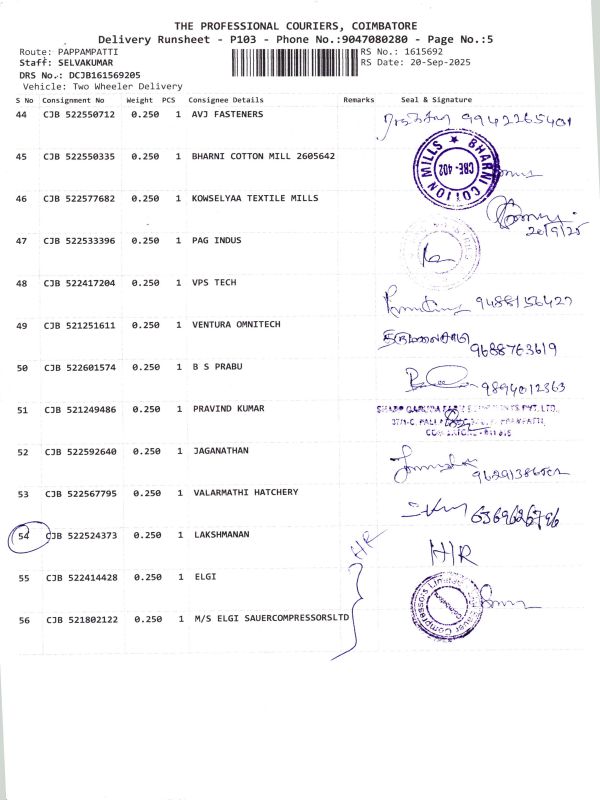 THE PROFESSIONAL COURIERS, COIMBATORE
Delivery Runsheet - P103 - Phone No.:9047080280 - Page No.:5
Route: PAPPAMPATTI
Staff: SELVAKUMAR
DRS No.: DCJB161569205
Vehicle: Two Wheeler Delivery
RS No.: 1615692
RS Date: 20-Sep-2025
S No Consignment No Weight PCS Consignee Details Remarks Seal & Signature
44 CJB 522550712 0.250 1 AVJ FASTENERS 9942265401
45 CJB 522550335 0.250 1 BHARNI COTTON MILL 2605642
BHARNI COTTON MILLS ★ CBE-402
46 CJB 522577682 0.250 1 KOWSELYAA TEXTILE MILLS
20/9/25
47 CJB 522533396 0.250 1 PAG INDUS
48 CJB 522417204 0.250 1 VPS TECH 9488156427
49 CJB 521251611 0.250 1 VENTURA OMNITECH 9688763619
50 CJB 522601574 0.250 1 B S PRABU 9894012363
51 CJB 521249486 0.250 1 PRAVIND KUMAR
52 CJB 522592640 0.250 1 JAGANATHAN
53 CJB 522567795 0.250 1 VALARMATHI HATCHERY
54 CJB 522524373 0.250 1 LAKSHMANAN H/R
55 CJB 522414428 0.250 1 ELGI H/R
56 CJB 521802122 0.250 1 M/S ELGI SAUERCOMPRESSORSLTD